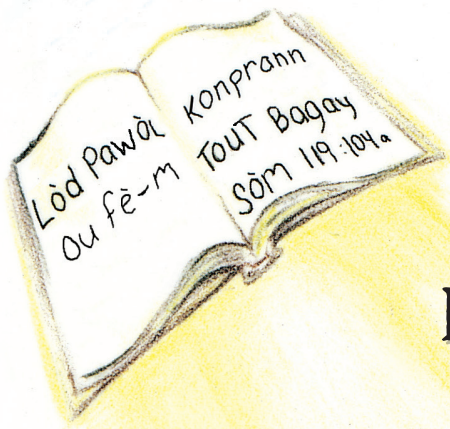 Lòd Pawòl
ou fè-m
Konprann
TOUT Bagay
Sòm 119:104a